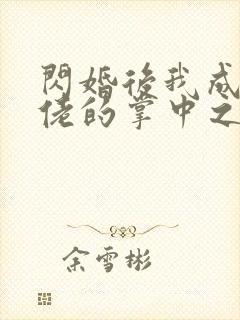 閃婚後我成
佬的掌中之
余雪彬